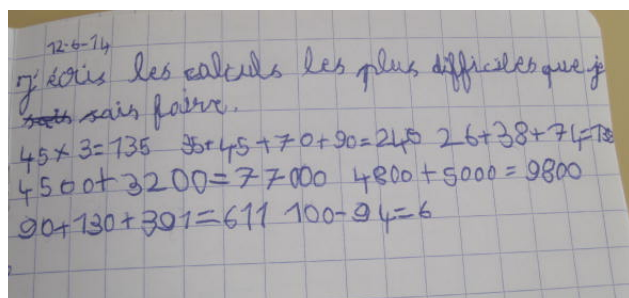 12-6-14
j'écris les calculs les plus difficiles que je
sais faire.
45×3=135 35+45+70+90=240 26+38+74=138
4500+3200=77000 4800+5000=9800
90+130+391=611 100-94=6